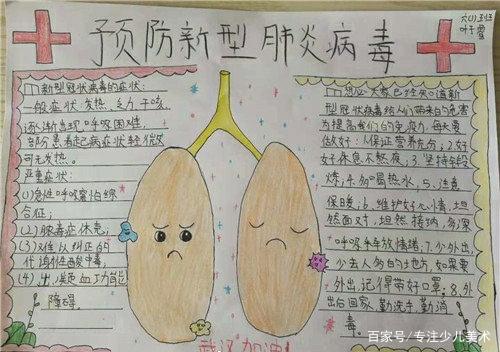 预防新型肺炎病毒
六(1)班
叶子雪
新型冠状病毒的症状:
一般症状:发热、乏力、干咳、
逐渐出现呼吸困难,
部防患者起病症状轻微,
可无发热。
严重症状:
(1)急性呼吸窘怕综
合征;
(2)脓毒症休克;
(3)难以纠正的
代谢性酸中毒,
(4)出、凝血功能
障碍
想必大家已经知道新
型冠状病毒给人们带来的危害
为提高我们的免疫力,每天要
做好:1.保证营养充分;2.好
好休息不熬夜,3.坚持年段
炼;4.多喝热水,5.注意
保暖;6.维护好心情,坦
然面对,坦然接纳,多深
呼吸来年放情绪;7.少外出,
少去人多的土地方,如果要
外出,记得带好口罩。8.外
出后回家,勤洗手,勤消
毒。
武汉加油!
百家号/专注少儿美术